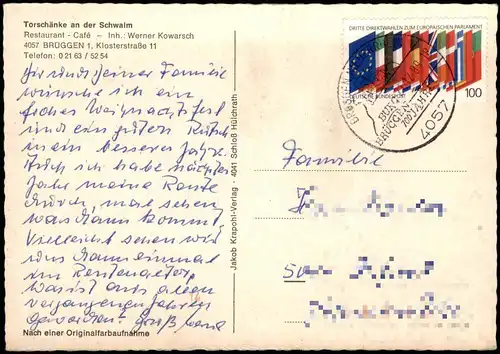 Torschänke an der Schwalm
Restaurant - Café – Inh.: Werner Kowarsch
4057 BRÜGGEN 1, Klosterstraße 11
Telefon: 0 21 63 / 52 54
Dir und Deiner Familie
wünsche ich ein
frohes Weihnachtsfest
und einen guten Rutsch
in ein besseres Jahr.
Auch ich habe nächstes
Jahr meine Rente
durch, mal sehen
was dann kommt.
Vielleicht sehen wir
uns dann einmal
im Rentenalter,
was ist aus allen
vergangenen Jahren
geworden? Gruß
Nach einer Originalfarbaufnahme
Jakob Krapohl-Verlag · 4041 Schloß Hülchrath
DRITTE DIREKTWAHLEN ZUM EUROPÄISCHEN PARLAMENT
DEUTSCHE BUNDESPOST
100
BURG
BRÜGGEN
700 JAHRE
4057
Familie